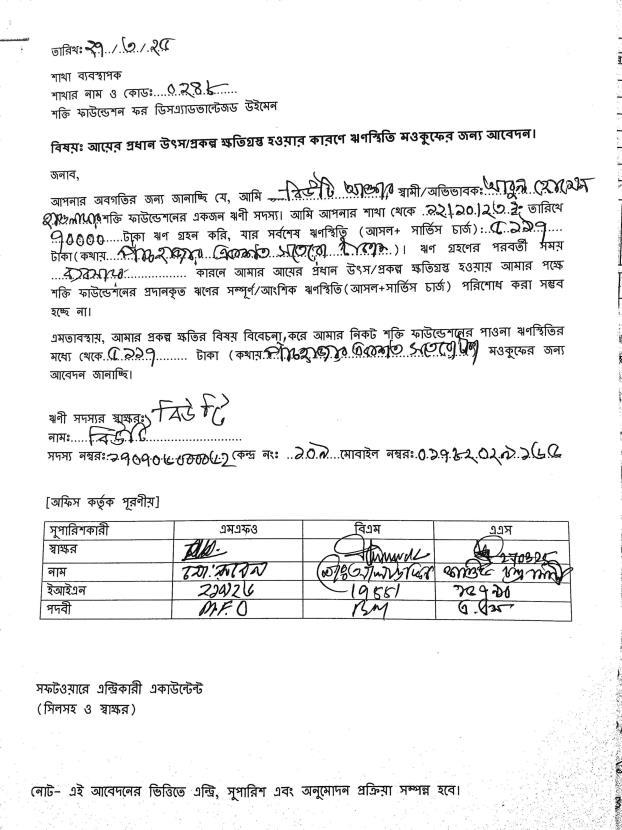 তারিখঃ২৭/৩/২৫
শাখা ব্যবস্থাপক
শাখার নাম ও কোডঃ....0286......
শক্তি ফাউন্ডেশন ফর ডিসএ্যাডভান্টেজড উইমেন
বিষয়ঃ আয়ের প্রধান উৎস/প্রকল্প ক্ষতিগ্রস্ত হওয়ার কারণে ঋণস্থিতি মওকুফের জন্য আবেদন।
জনাব,
আপনার অবগতির জন্য জানাচ্ছি যে, আমি ....বিউটি আক্তার স্বামী/অভিভাবকঃ আবুল হোসেন
শক্তি ফাউন্ডেশনের একজন ঋণী সদস্য। আমি আপনার শাখা থেকে তারিখে
৭০০০০.....টাকা ঋণ গ্রহন করি, যার সর্বশেষ ঋণস্থিতি (আসল+ সার্ভিস চার্জ)ঃ.৫.১১৭
টাকা(কথায়..পাঁচহাজার একশত সতেরো টাকা..)। ঋণ গ্রহণের পরবর্তী সময়
................ কারনে আমার আয়ের প্রধান উৎস/প্রকল্প ক্ষতিগ্রস্ত হওয়ায় আমার পক্ষে
শক্তি ফাউন্ডেশনের প্রদানকৃত ঋণের সম্পূর্ণ/আংশিক ঋণস্থিতি(আসল+সার্ভিস চার্জ) পরিশোধ করা সম্ভব
হচ্ছে না।
এমতাবস্থায়, আমার প্রকল্প ক্ষতির বিষয় বিবেচনা করে আমার নিকট শক্তি ফাউন্ডেশনের পাওনা ঋণস্থিতির
মধ্যে থেকে.৫.১১৭......... টাকা (কথায়.পাঁচহাজার একশত সতেরো মওকুফের জন্য
আবেদন জানাচ্ছি।
ঋণী সদস্যর স্বাক্ষরঃ বিউটি
নামঃ....বিউটি....................
সদস্য নম্বরঃ কেন্দ্র নংঃ ..২০৯..মোবাইল নম্বরঃ
[অফিস কর্তৃক পূরণীয়]
সুপারিশকারী এমএফও বিএম এএস
স্বাক্ষর
নাম মো: রুবেল
ইআইএন 19551
পদবী M.F.O BM এ.এস
সফটওয়ারে এন্ট্রিকারী একাউন্টেন্ট
(সিলসহ ও স্বাক্ষর)
নোট- এই আবেদনের ভিত্তিতে এন্ট্রি, সুপারিশ এবং অনুমোদন প্রক্রিয়া সম্পন্ন হবে।